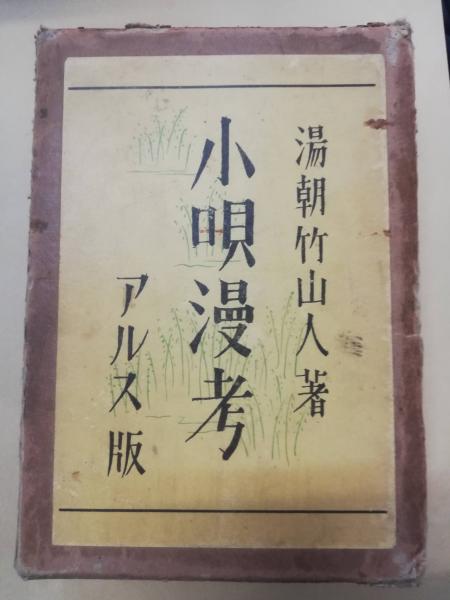 湯朝竹山人著
小唄漫考
アルス版